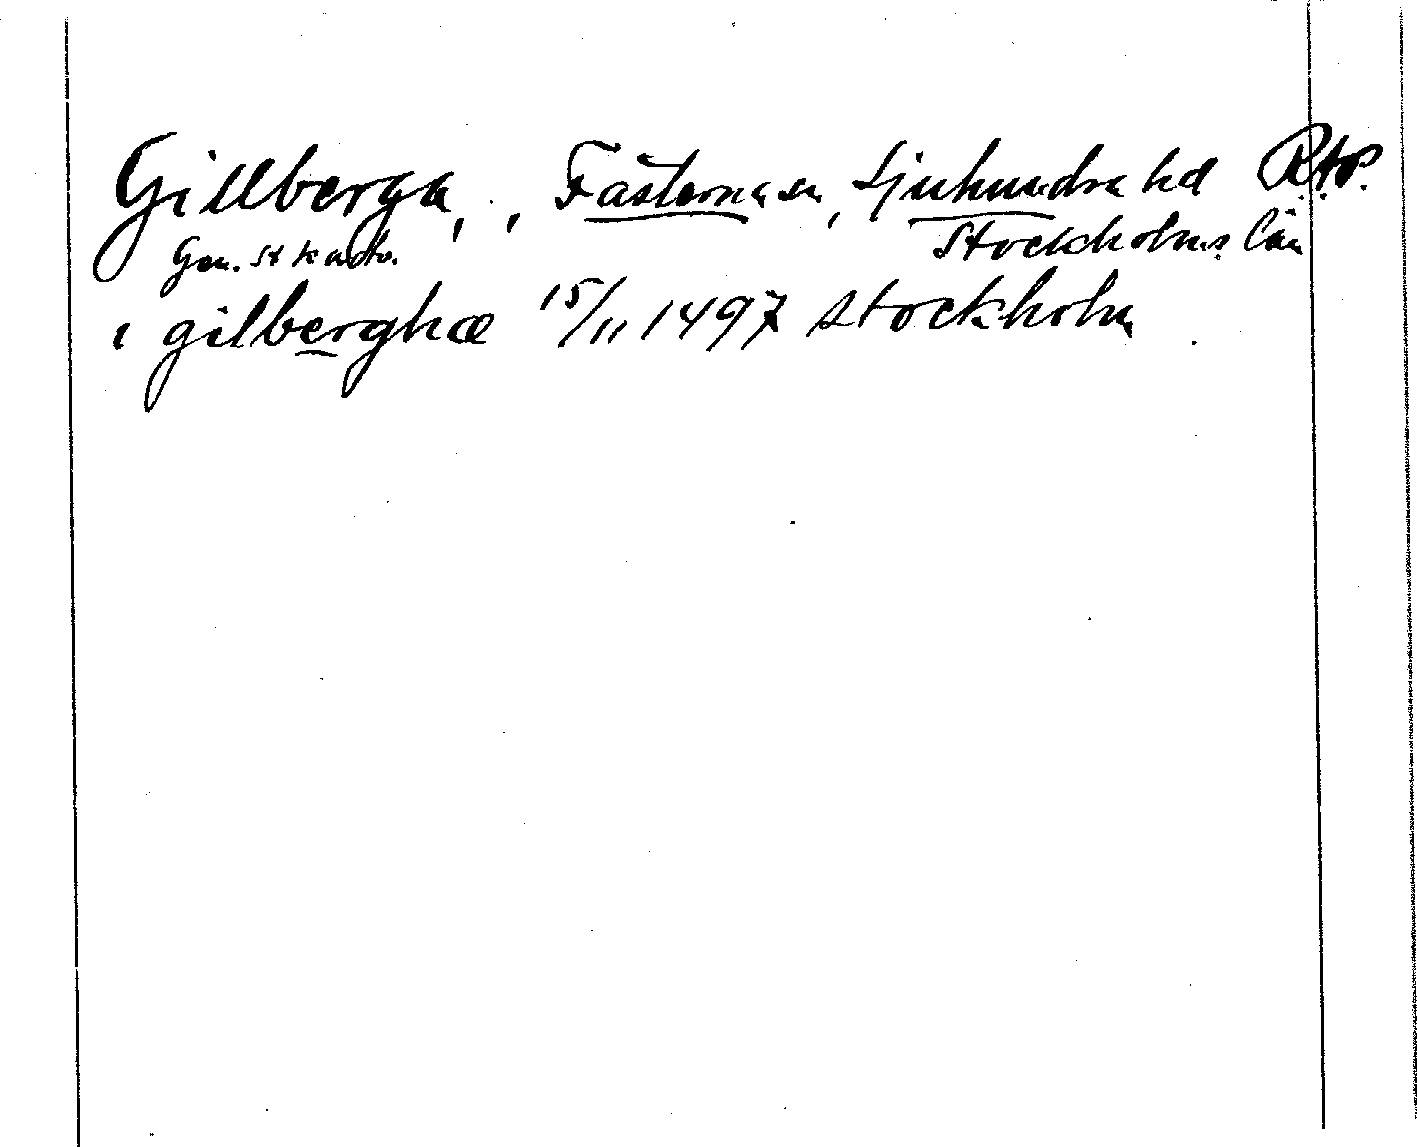 Gillberga, , Fasterna sn, Sjuhundra hd R.t.P.
Gen. st karta. Stockholms län
i gilberghæ 15/11 1497 Stockholm